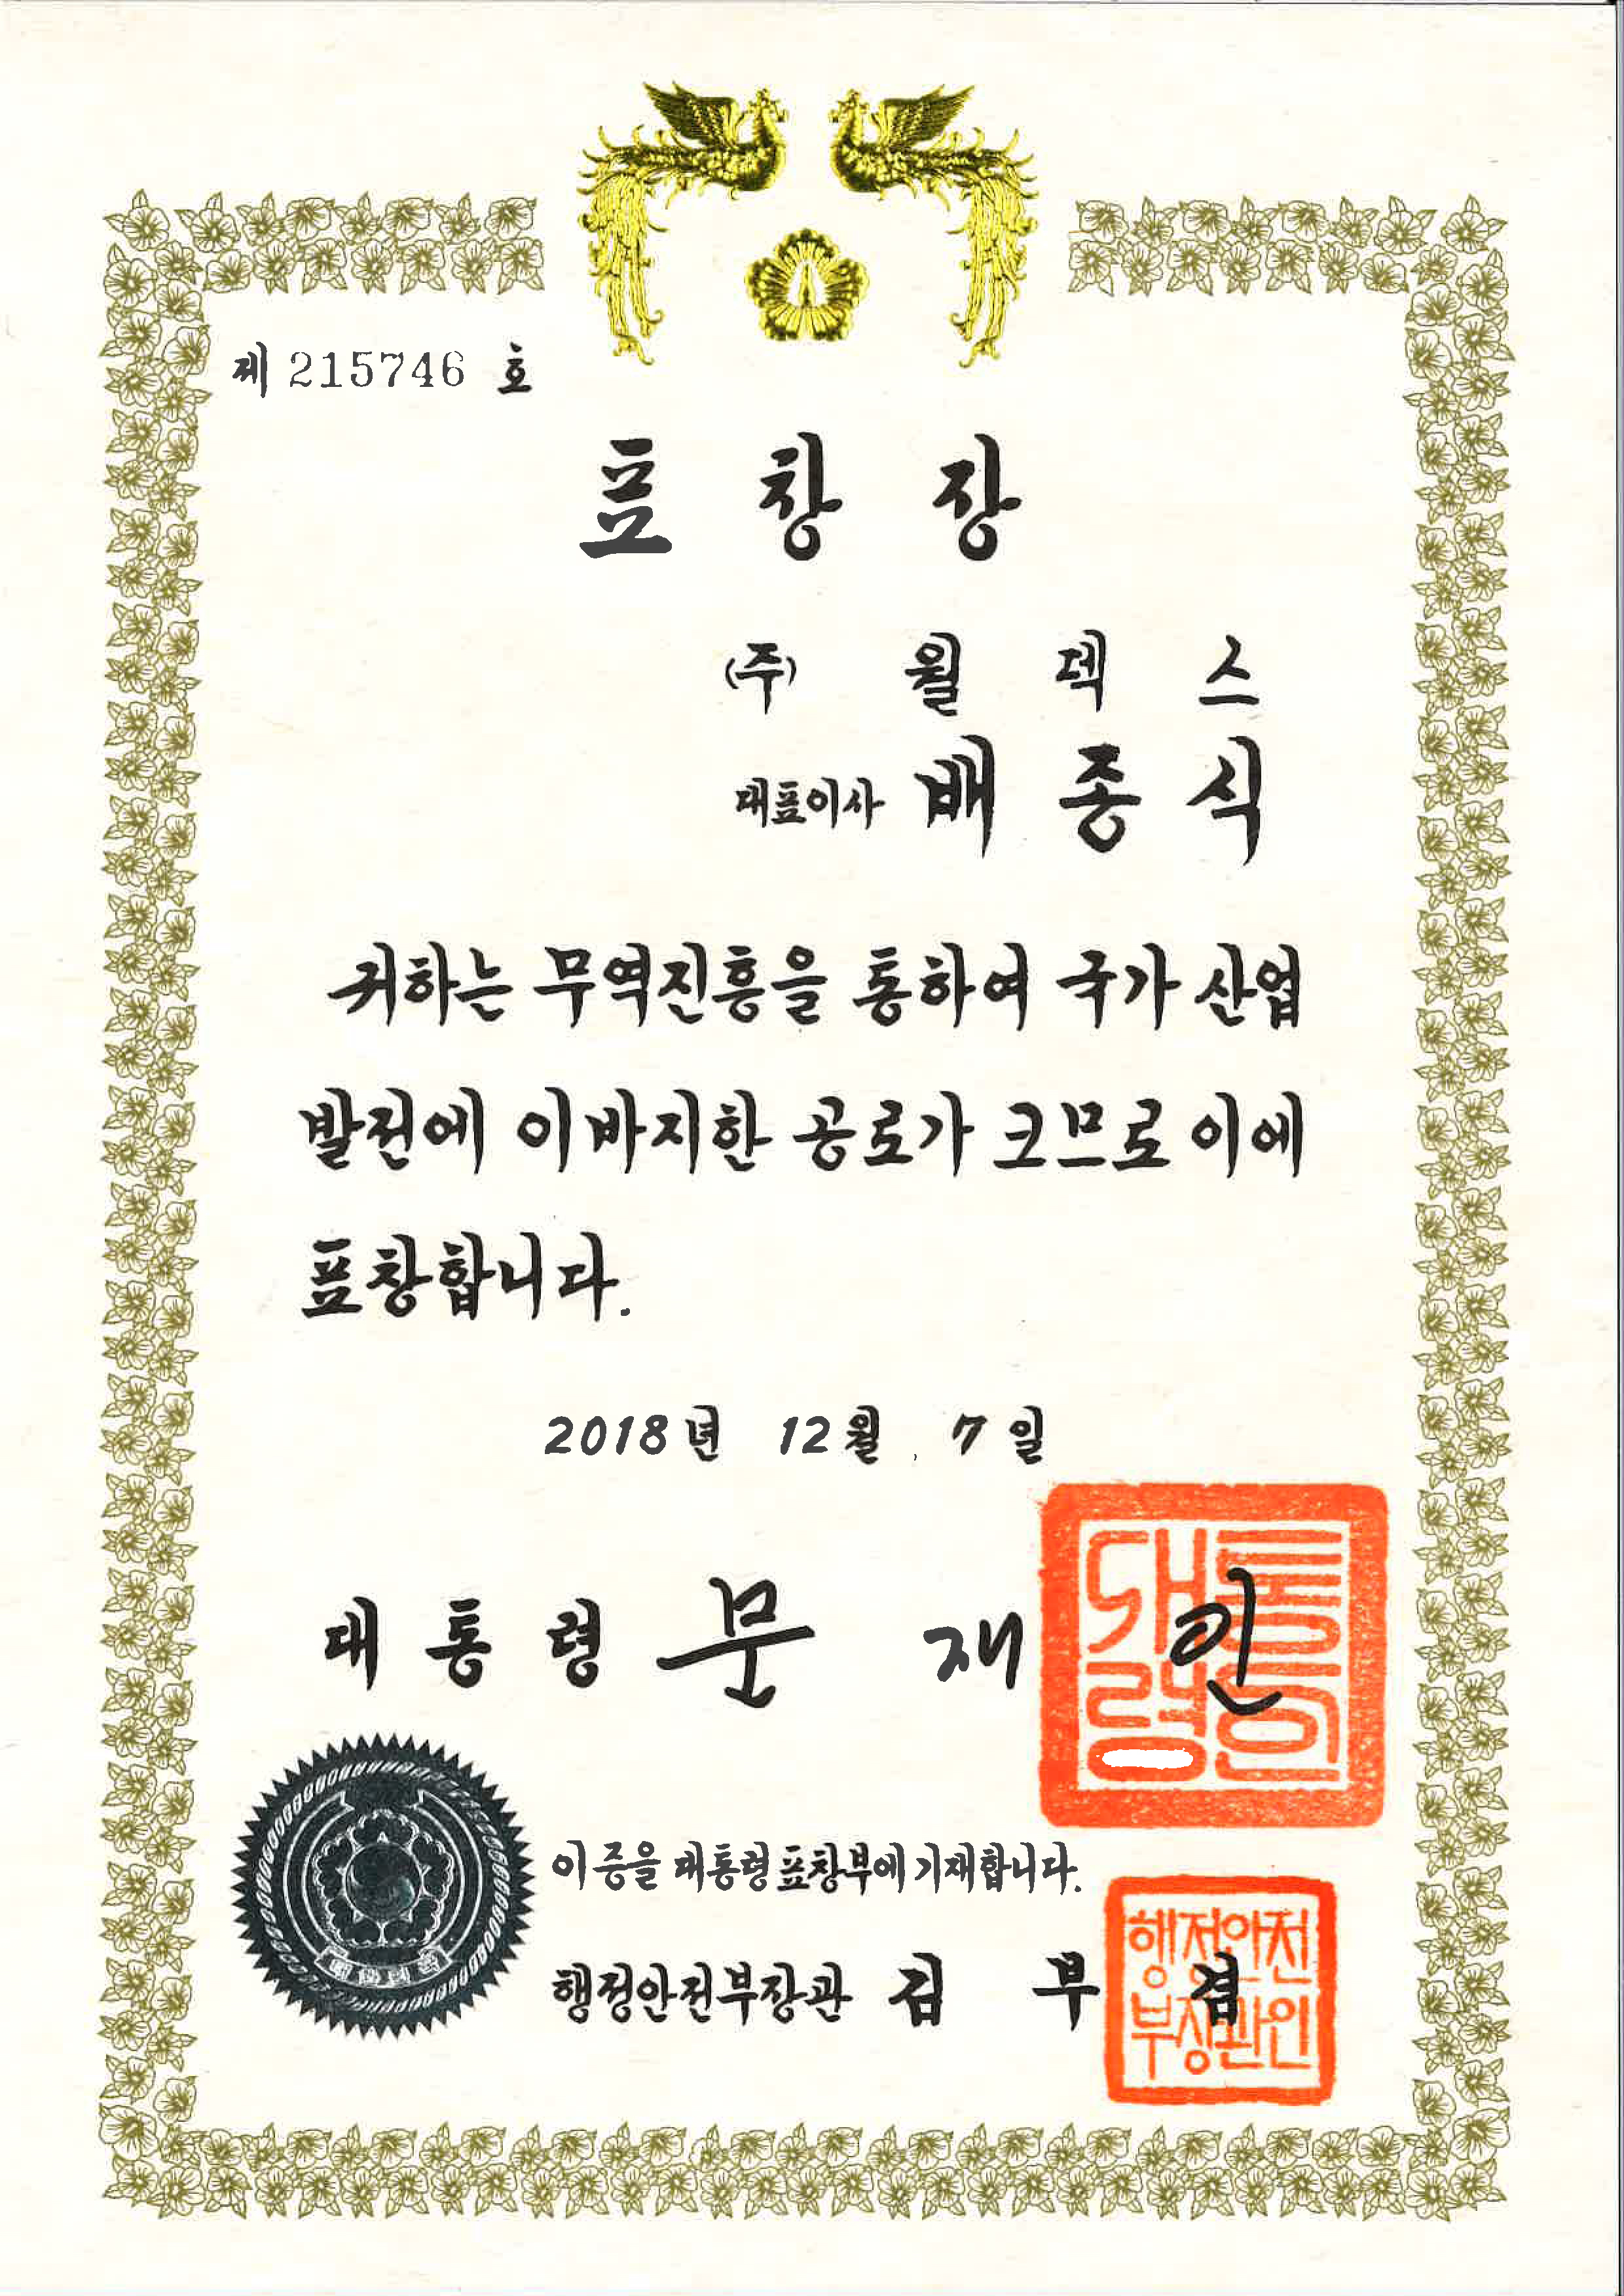 제 215746 호
표 창 장
(주) 월 덱 스
대표이사 배 종 식
귀하는 무역진흥을 통하여 국가 산업
발전에 이바지한 공로가 크므로 이에
표창합니다.
2018년 12월 7일
대 통 령 문 재 인
대통령인
이 증을 대통령 표창부에 기재합니다.
행정안전부장관 김 부 겸
행정안전
부장관인
대한민국